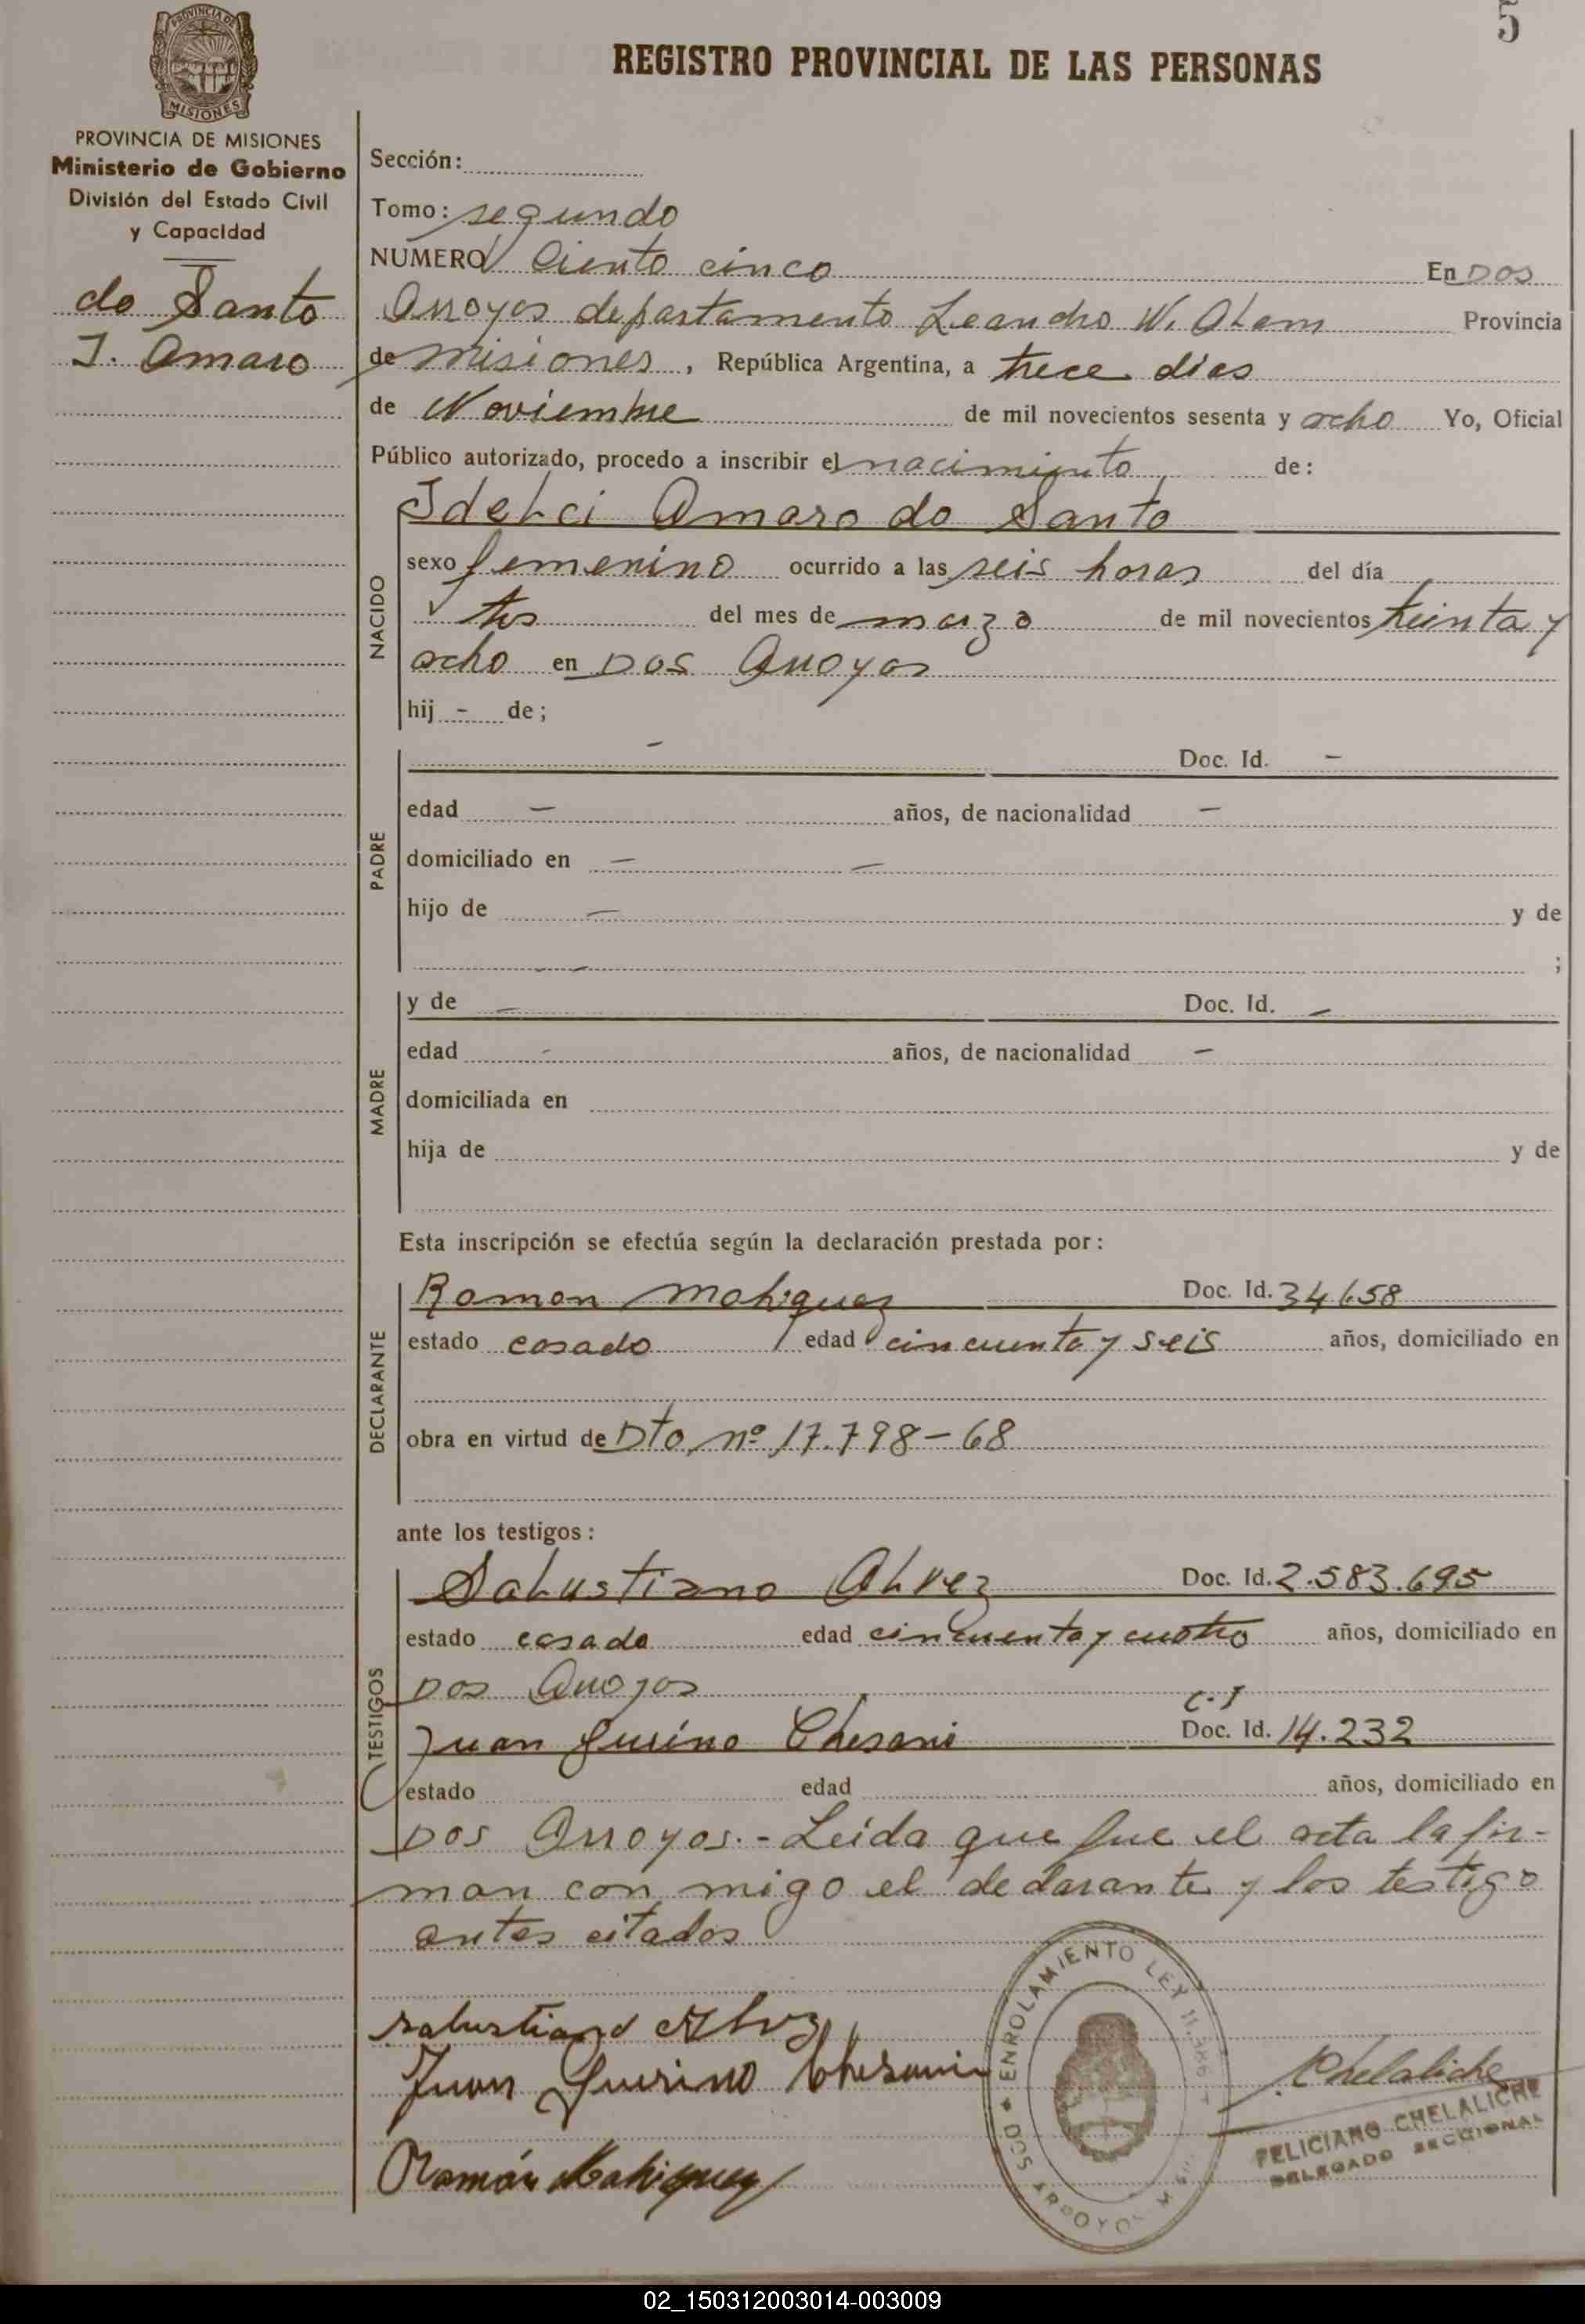 5
REGISTRO PROVINCIAL DE LAS PERSONAS
PROVINCIA DE
MISIONES
PROVINCIA DE MISIONES
Ministerio de Gobierno
División del Estado Civil
y Capacidad
do Santo
I. Amaro
Sección:
Tomo: segundo
NUMERO Ciento cinco En Dos
Arroyos departamento Leandro N. Alem Provincia
de misiones, República Argentina, a trece días
de Noviembre de mil novecientos sesenta y ocho Yo, Oficial
Público autorizado, procedo a inscribir el nacimiento de:
Idelci Amaro do Santo
NACIDO
sexo femenino ocurrido a las seis horas del día
tres del mes de marzo de mil novecientos treinta y
ocho en Dos Arroyos
hij - de;
PADRE
- Doc. Id. -
edad - años, de nacionalidad -
domiciliado en - -
hijo de - y de
- ;
MADRE
y de - Doc. Id. -
edad - años, de nacionalidad -
domiciliada en
hija de y de
Esta inscripción se efectúa según la declaración prestada por:
DECLARANTE
Ramon Mahiquez Doc. Id. 34658
estado casado edad cincuenta y seis años, domiciliado en
obra en virtud de Dto nº 17.798-68
ante los testigos:
TESTIGOS
Salustiano Alvez Doc. Id. 2.583.695
estado casado edad cincuenta y cuatro años, domiciliado en
Dos Arroyos
C.I
Juan Guerino Chesani Doc. Id. 14.232
estado edad años, domiciliado en
Dos Arroyos.- Leída que fue el acta la fir-
man con migo el declarante y los testigo
antes citados
Salustiano Alvez
Juan Guerino Chesani
Román Mahiquez
ENROLAMIENTO LEY 11.386
DOS ARROYOS
Chelaliche
FELICIANO CHELALICHE
DELEGADO SECCIONAL
02_150312003014-003009